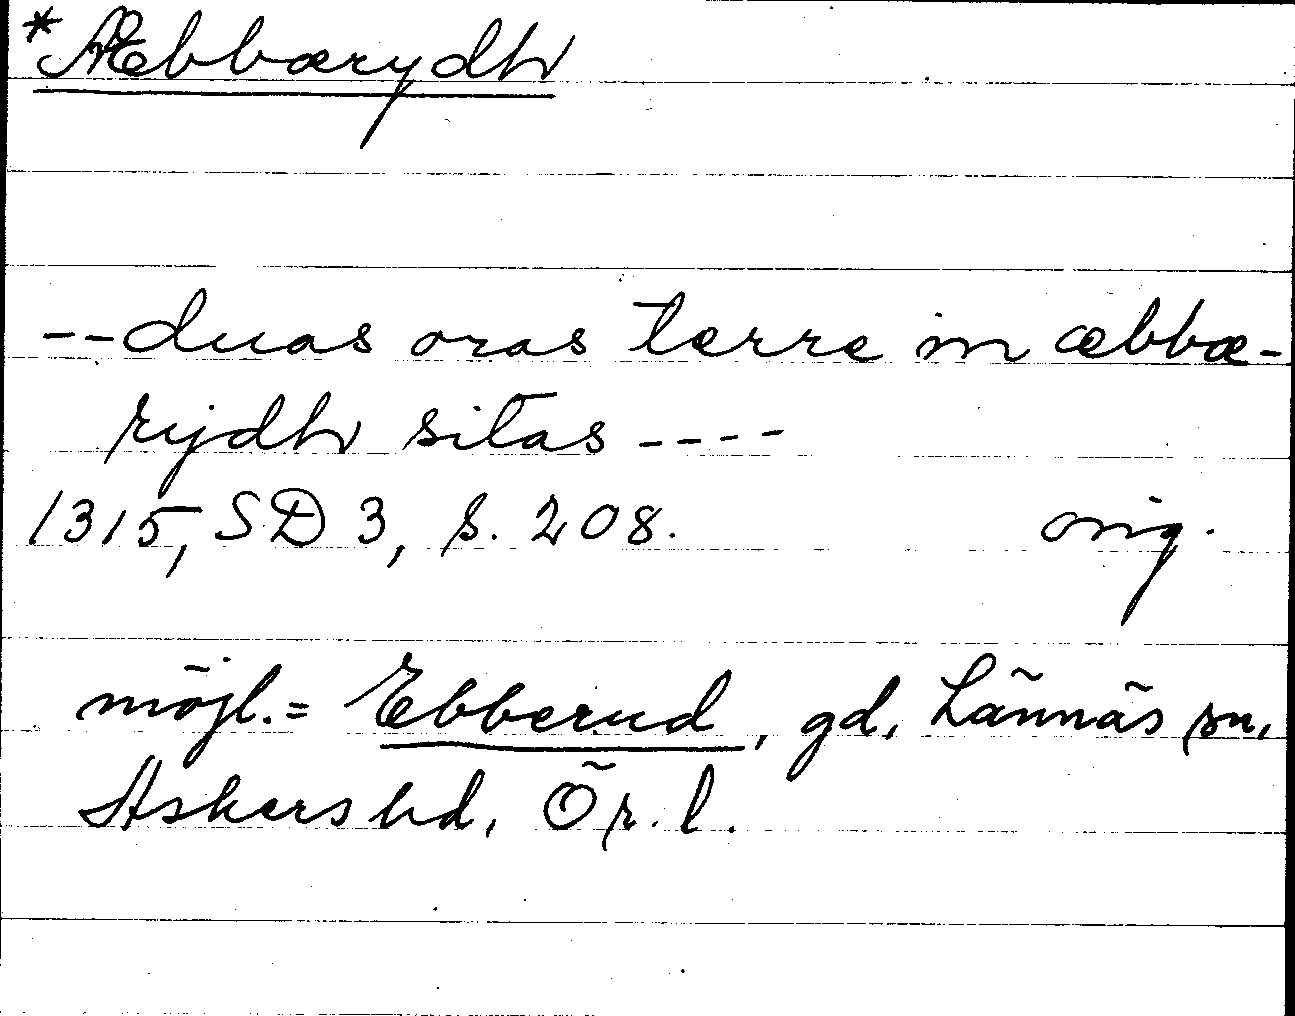 *Æbbærydh
--duas oras terre in æbbæ-
rydh sitas ----
1315, SD 3, s. 208. orig.
möjl. = Ebberud, gd, Lännäs sn,
Askers hd, Ör. l.